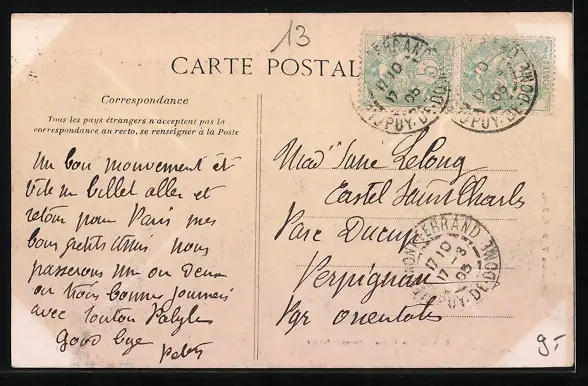 13
CARTE POSTALE
Correspondance
Tous les pays étrangers n'acceptent pas la
correspondance au recto, se renseigner à la Poste
Un bon mouvement et
vite un billet aller et
retour pour Paris mes
bons petits amis nous
passerons un ou deux
ou trois bonnes journées
avec tonton
Good bye
Lelong
Castel Saint Charles
Parc Ducup
Perpignan
Pyr orientales
MONTFERRAND
17 10
17 -3
05
PUY-DE-DOME
MONTFERRAND
17 10
17 -3
05
PUY-DE-DOME
MONTFERRAND
17 10
17 -3
05
PUY-DE-DOME
9.-